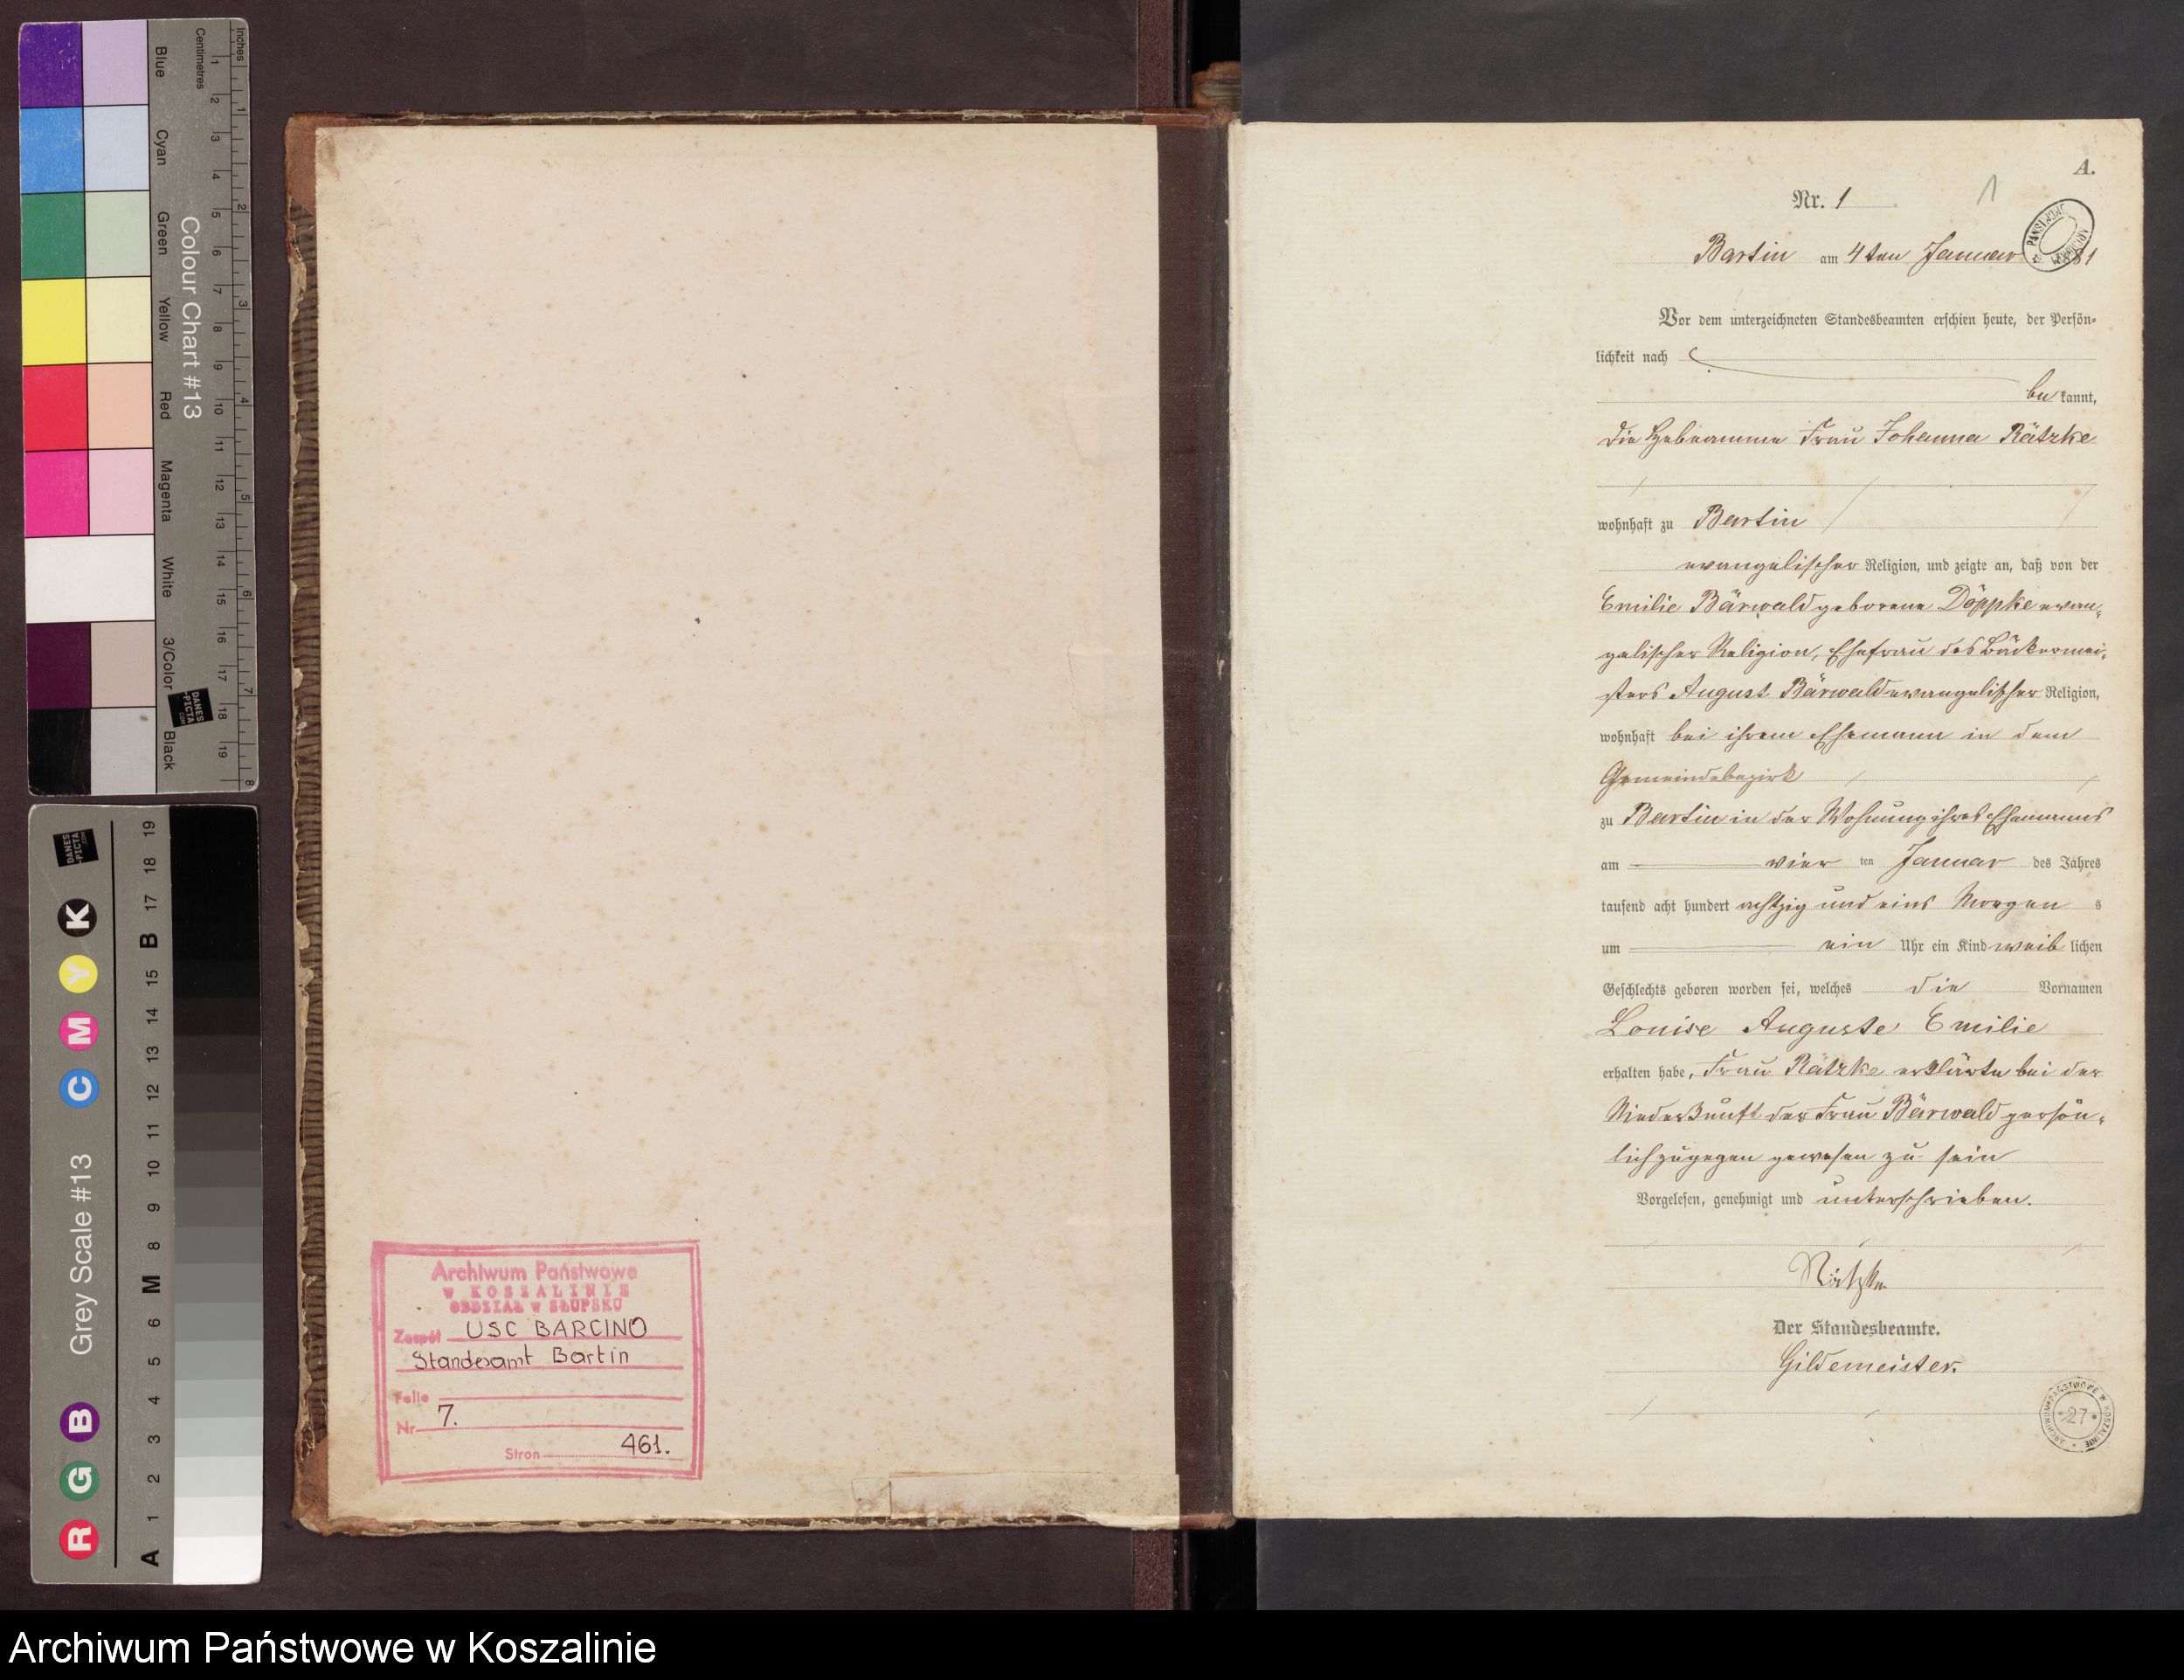 Inches
Centimetres
1 2 3 4 5 6 7 8 9 10 11 12 13 14 15 16 17 18 19
1 2 3 4 5 6 7 8
Colour Chart #13
Blue Cyan Green Yellow Red Magenta White 3/Color Black
DANES
-PICTA
.COM
Grey Scale #13
R G B C M Y K
DANES
-PICTA
.COM
A 1 2 3 4 5 6 M 8 9 10 11 12 13 14 15 B 17 18 19
Archiwum Państwowe
W KOSZALINIE
ODDZIAŁ W SŁUPSKU
Zespół USC BARCINO
Standesamt Bartin
Nr 7.
Stron 461.
A.
Nr. 1
1
Bartin am 4ten Januar 1881
Vor dem unterzeichneten Standesbeamten erschien heute, der Persön-
lichkeit nach
be kannt,
die Hebeamme Frau Johanna Rätzke
wohnhaft zu Bartin
evangelischer Religion, und zeigte an, daß von der
Emilie Bärwald geborene Döppke evan-
gelischer Religion, Ehefrau des Bäckermei-
sters August Bärwald evangelischer Religion,
wohnhaft bei ihrem Ehemann in dem
Gemeindebezirk
zu Bartin in der Wohnung ihres Ehemanns
am vier ten Januar des Jahres
tausend acht hundert achtzig und eins Morgen s
um ein Uhr ein Kind weib lichen
Geschlechts geboren worden sei, welches die Vornamen
Louise Auguste Emilie
erhalten habe, Frau Rätzke erklärte bei der
Niederkunft der Frau Bärwald persön-
lich zugegen gewesen zu sein
Vorgelesen, genehmigt und unterschrieben.
Rätzke
Der Standesbeamte.
Gildemeister.
ARCHIWUM PAŃSTWOWE W KOSZALINIE
* 27 *
Archiwum Państwowe w Koszalinie